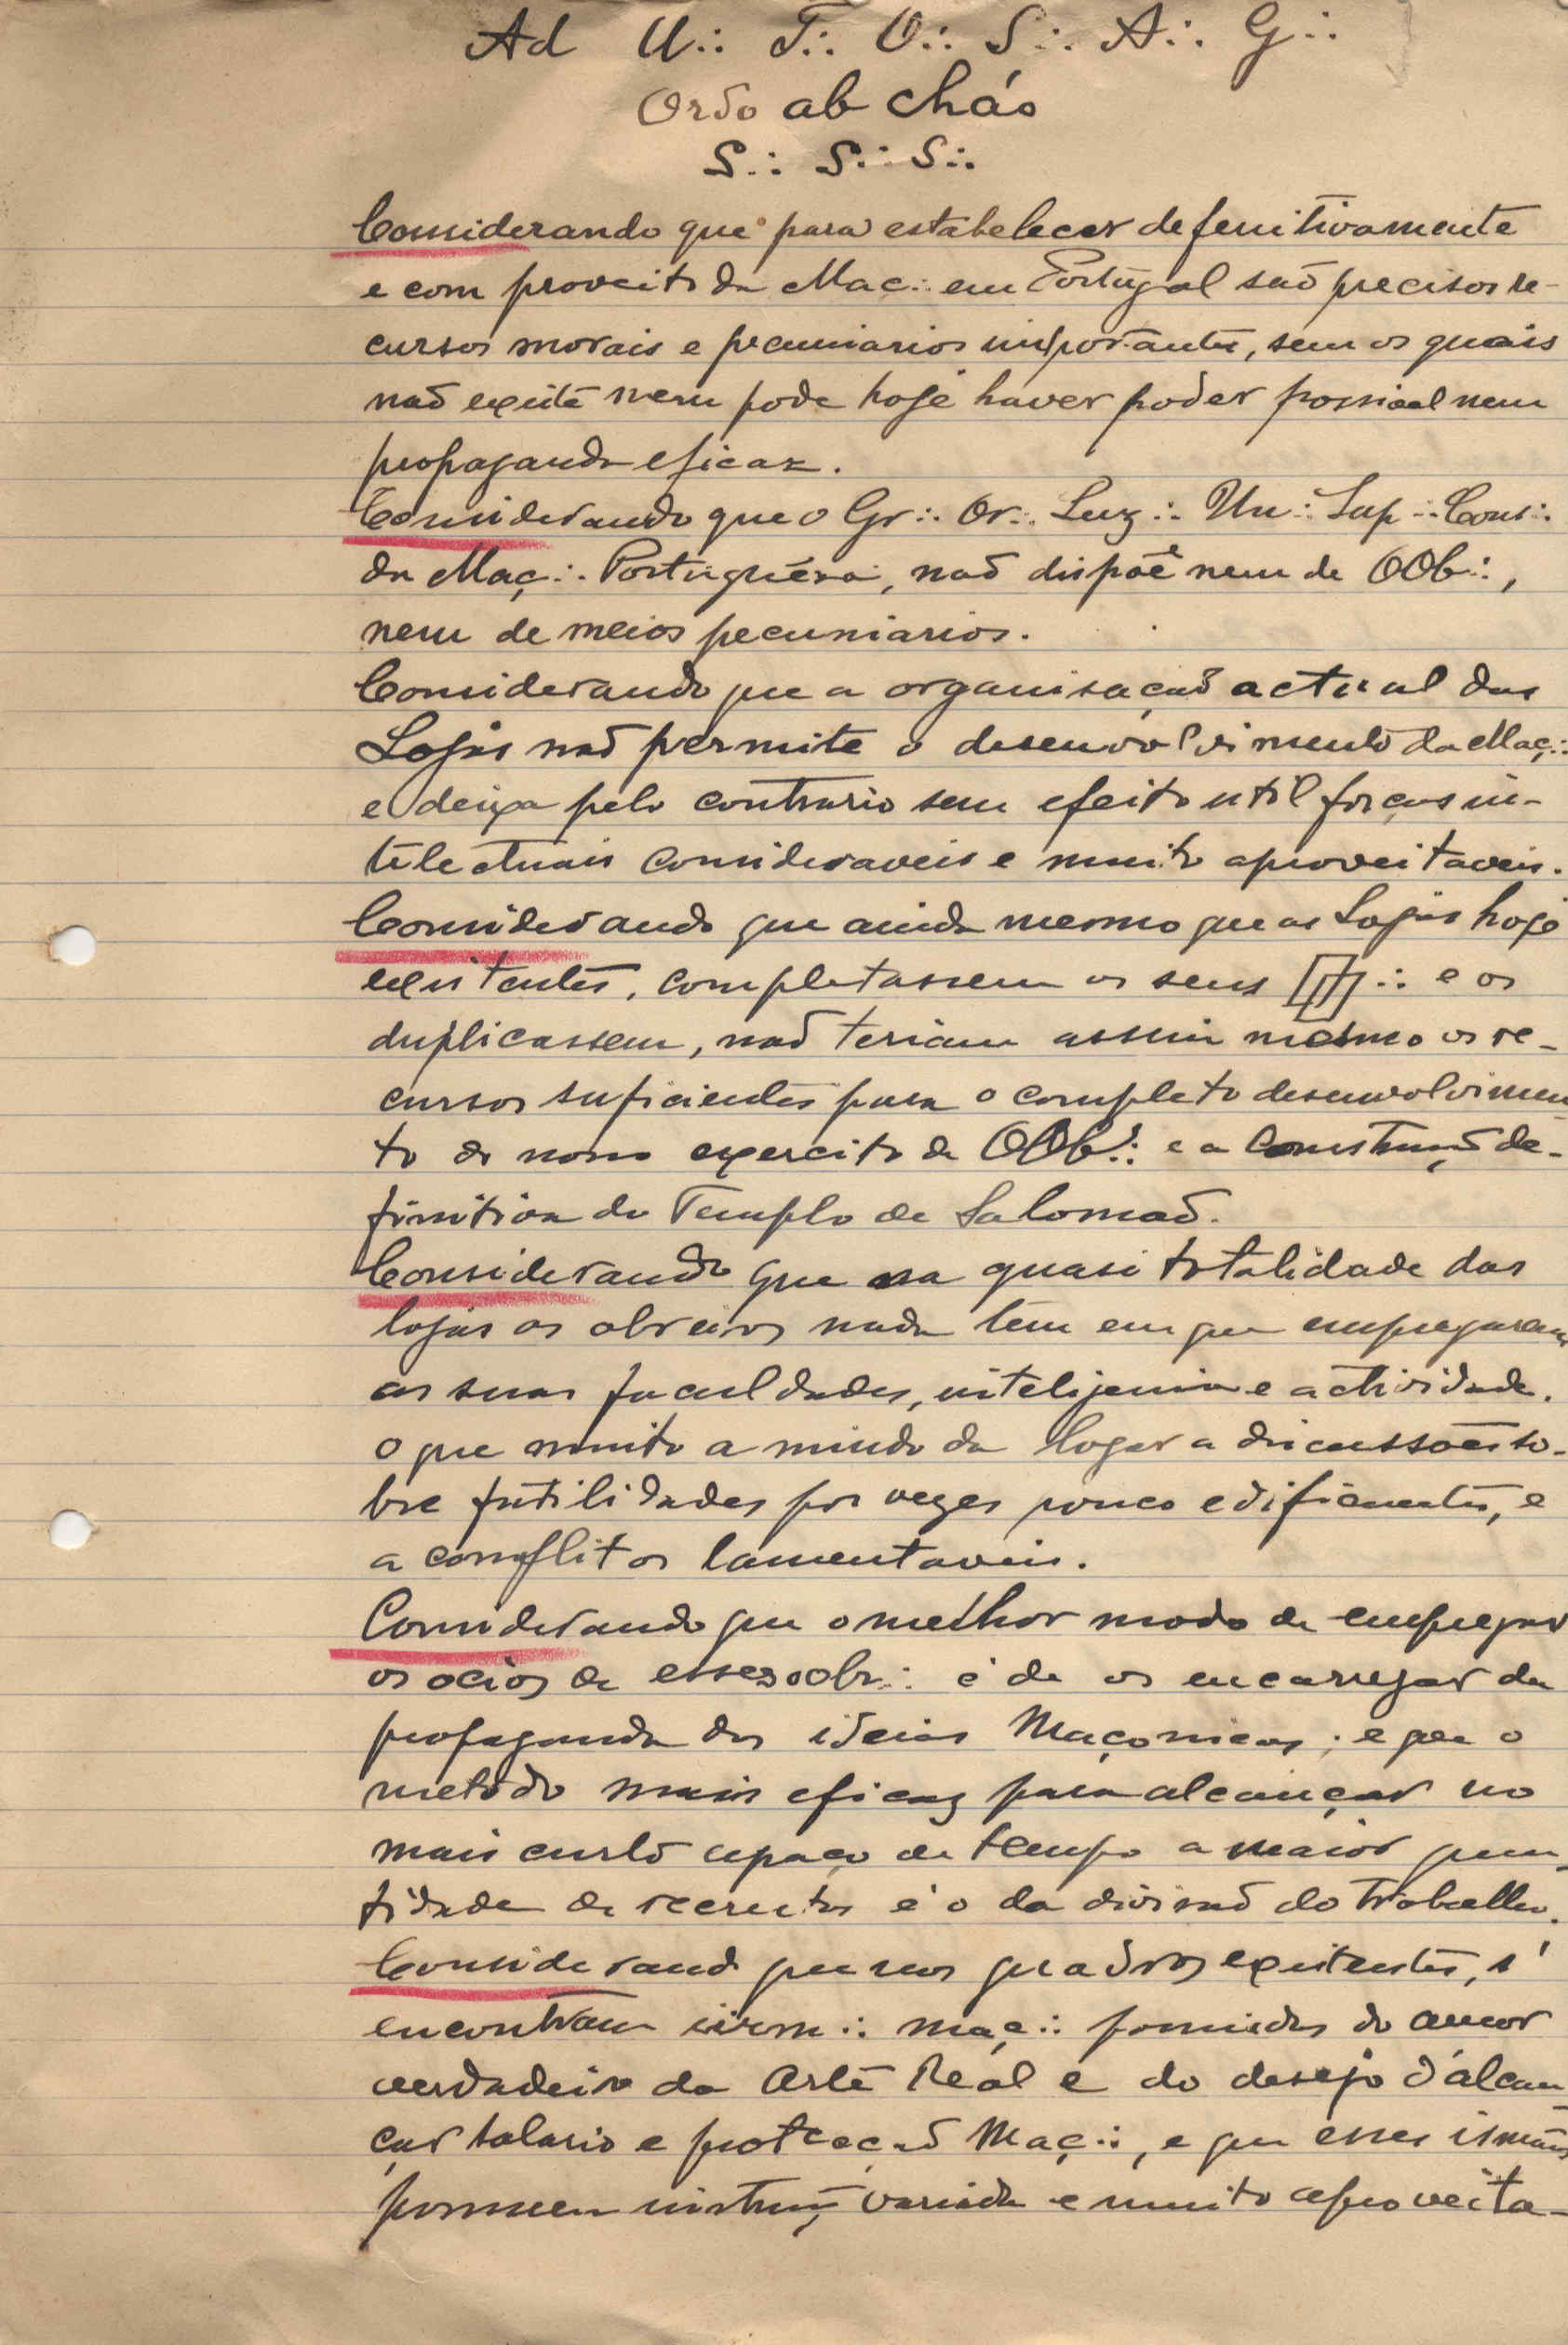 Ad U∴ T∴ O∴ S∴ A∴ G∴
Ordo ab cháo
S∴ S∴ S∴
Considerando que para estabelecer defenitivamente
e com proveito da Mac∴ em Portugal saõ precisos re-
cursos morais e pecuniarios importantes, sem os quais
naõ existe nem pode hoje haver poder possivel nem
propaganda eficaz.
Considerando que o Gr∴ Or∴ Luz∴ Un∴ Sup∴ Cons∴
da Maç∴ Portuguêsa, naõ dispoê nem de OOb∴,
nem de meios pecuniarios.
Considerando que a organisaçaõ actual das
Lojas naõ permite o desenvolvimento da Maç∴
e deixa pelo contrario sem efeito util forças in-
telectuais consideraveis e muito aproveitaveis.
Considerando que ainda mesmo que as Lojas hoje
existentes, completassem os seus ∴ e os
duplicassem, naõ teriam assim mesmo os re-
cursos suficientes para o completo desenvolvimen-
to do nosso exercito de OOb∴ e a construçaõ de-
finitiva do Templo de Salomaõ.
Considerando que na quasi totalidade das
lojas os obreiros nada tem em que empregarem
as suas faculdades, intelijencia e actividade.
o que muito a miudo da logar a discussoẽs so-
bre futilidades por vezes pouco edificantes, e
a conflitos lamentaveis.
Considerando que o melhor modo de empregar
os ocios de esses obr∴ é de os encarregar da
propaganda das ideias Maçonicas; e que o
metodo mais eficaz para alcançar no
mais curto espaço de tempo a maior quan-
tidade de recrutas é o da divisaõ do trabalho.
Considerando que nos quadros existentes, s'
encontram iirm∴ maç∴ possuidos do amor
verdadeiro da Arte Real e do desejo d'alcan-
çar salario e protecçaõ Maç∴, e que esses irmaõs
possuem instruçaõ variada e muito aproveita-